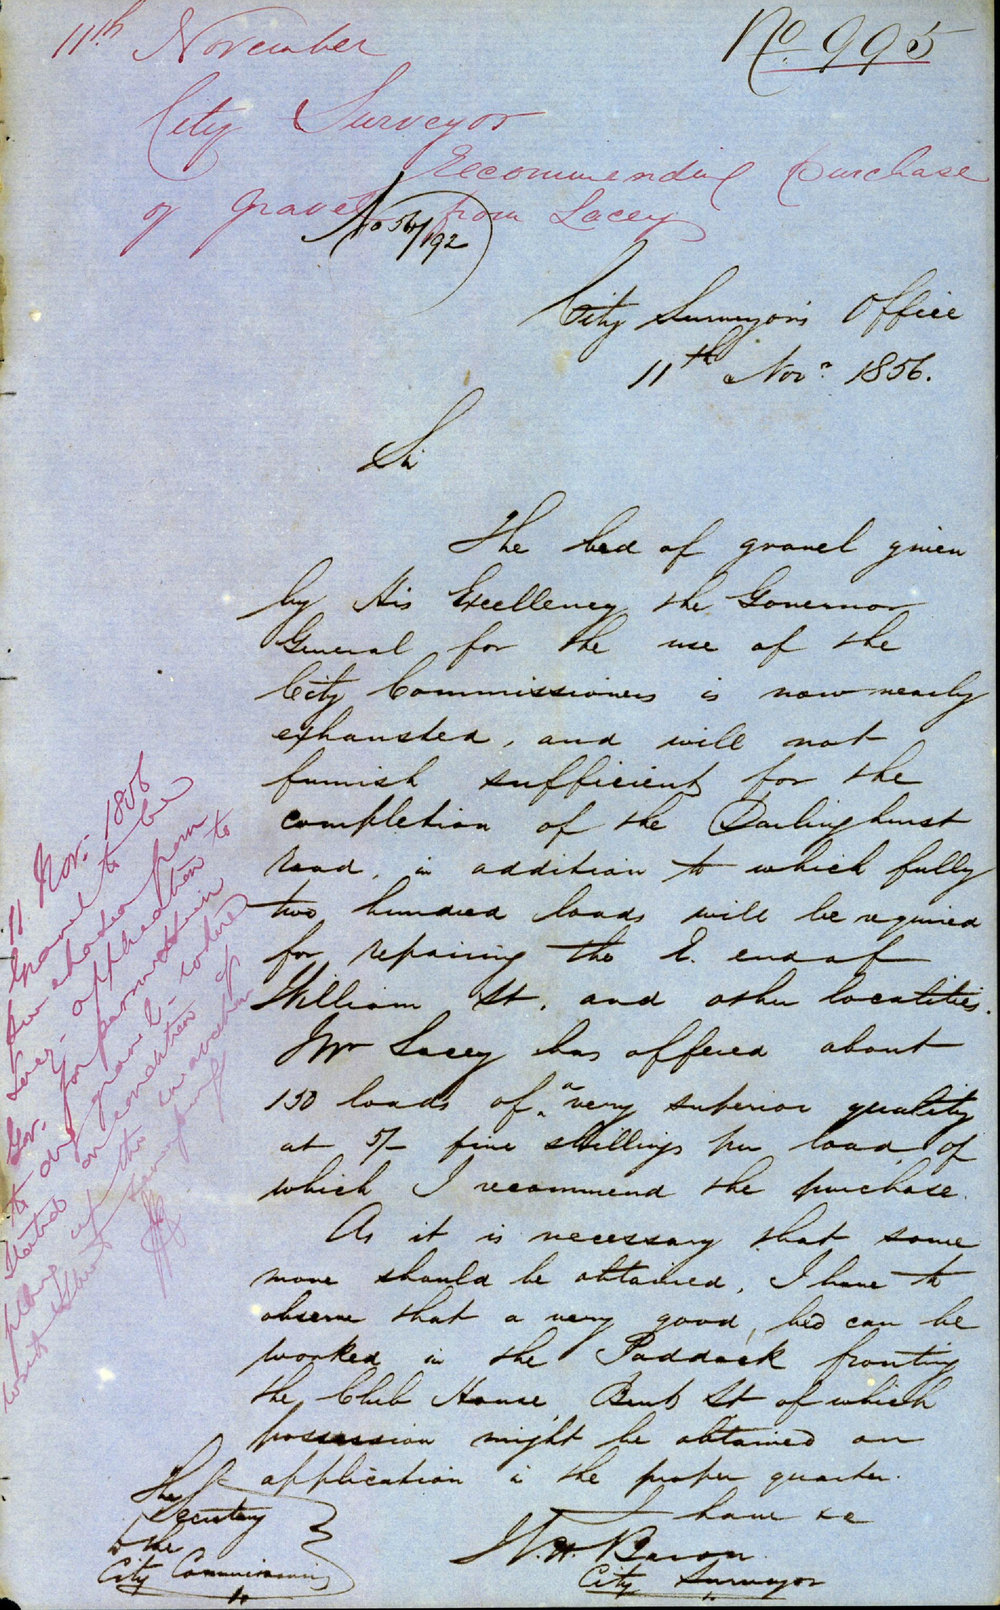 11th November
No. 995
City Surveyor
Recommending purchase
of gravel from Lacey
No 56/192
City Surveyor's Office
11th Novr. 1856.
Sir
The bed of gravel given
by His Excellency the Governor
General for the use of the
City Commissioners is now nearly
exhausted, and will not
furnish sufficient for the
completion of the Darlinghurst
road, in addition to which fully
two hundred loads will be required
for repairing the E. end of
William St. and other localities.
Mr Lacey has offered about
150 loads of a very superior quality
at 5/- five shillings per load, of
which I recommend the purchase.
As it is necessary that some
more should be obtained, I have to
observe that a very good bed can be
worked in the Paddock fronting
the Club House, Bent St of which
possession might be obtained on
application in the proper quarter.
I have &c
W. H. Baron
City Surveyor
The
Secretary
to the
City Commissioners
11 Nov. 1856
Gravel to be
purchased from
Lacey - application to
Gov. for permission
to dig gravel - where
stated on condition of
filling up the excavation
with street sweepings